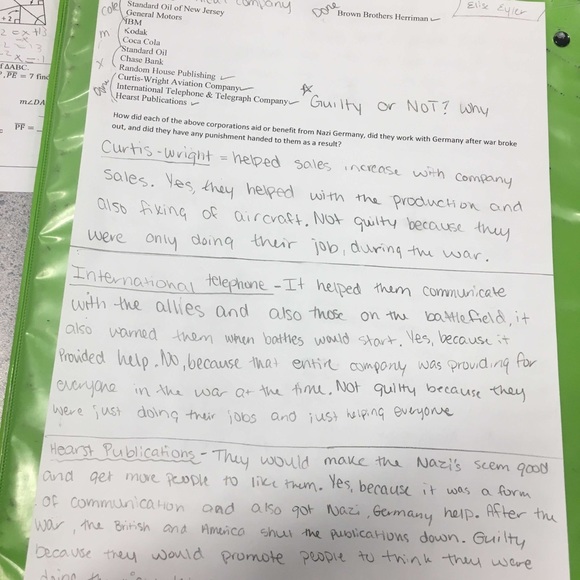 company
Elise Eyler
Done Brown Brothers Herriman
Standard Oil of New Jersey
General Motors
IBM
Kodak
Coca Cola
Standard Oil
Chase Bank
Random House Publishing
Curtis-Wright Aviation Company
International Telephone & Telegraph Company
Hearst Publications
Guilty or NOT? Why
How did each of the above corporations aid or benefit from Nazi Germany, did they work with Germany after war broke
out, and did they have any punishment handed to them as a result?
Curtis-wright = helped sales increase with company
sales. Yes, they helped with the production and
also fixing of aircraft. Not guilty because they
were only doing their job, during the war.
International telephone - It helped them communicate
with the allies and also those on the battlefield, it
also warned them when battles would start. Yes, because it
Provided help. No, because that entire company was providing for
everyone in the war at the time. Not guilty because they
were just doing their jobs and just helping everyone
Hearst Publications - They would make the Nazi's seem good
and get more people to like them. Yes, because it was a form
of communication and also got Nazi, Germany help. After the
war, the British and America shut the publications down. Guilty
because they would promote people to think they were
ΔABC.
PE = 7
m∠DA
PF =